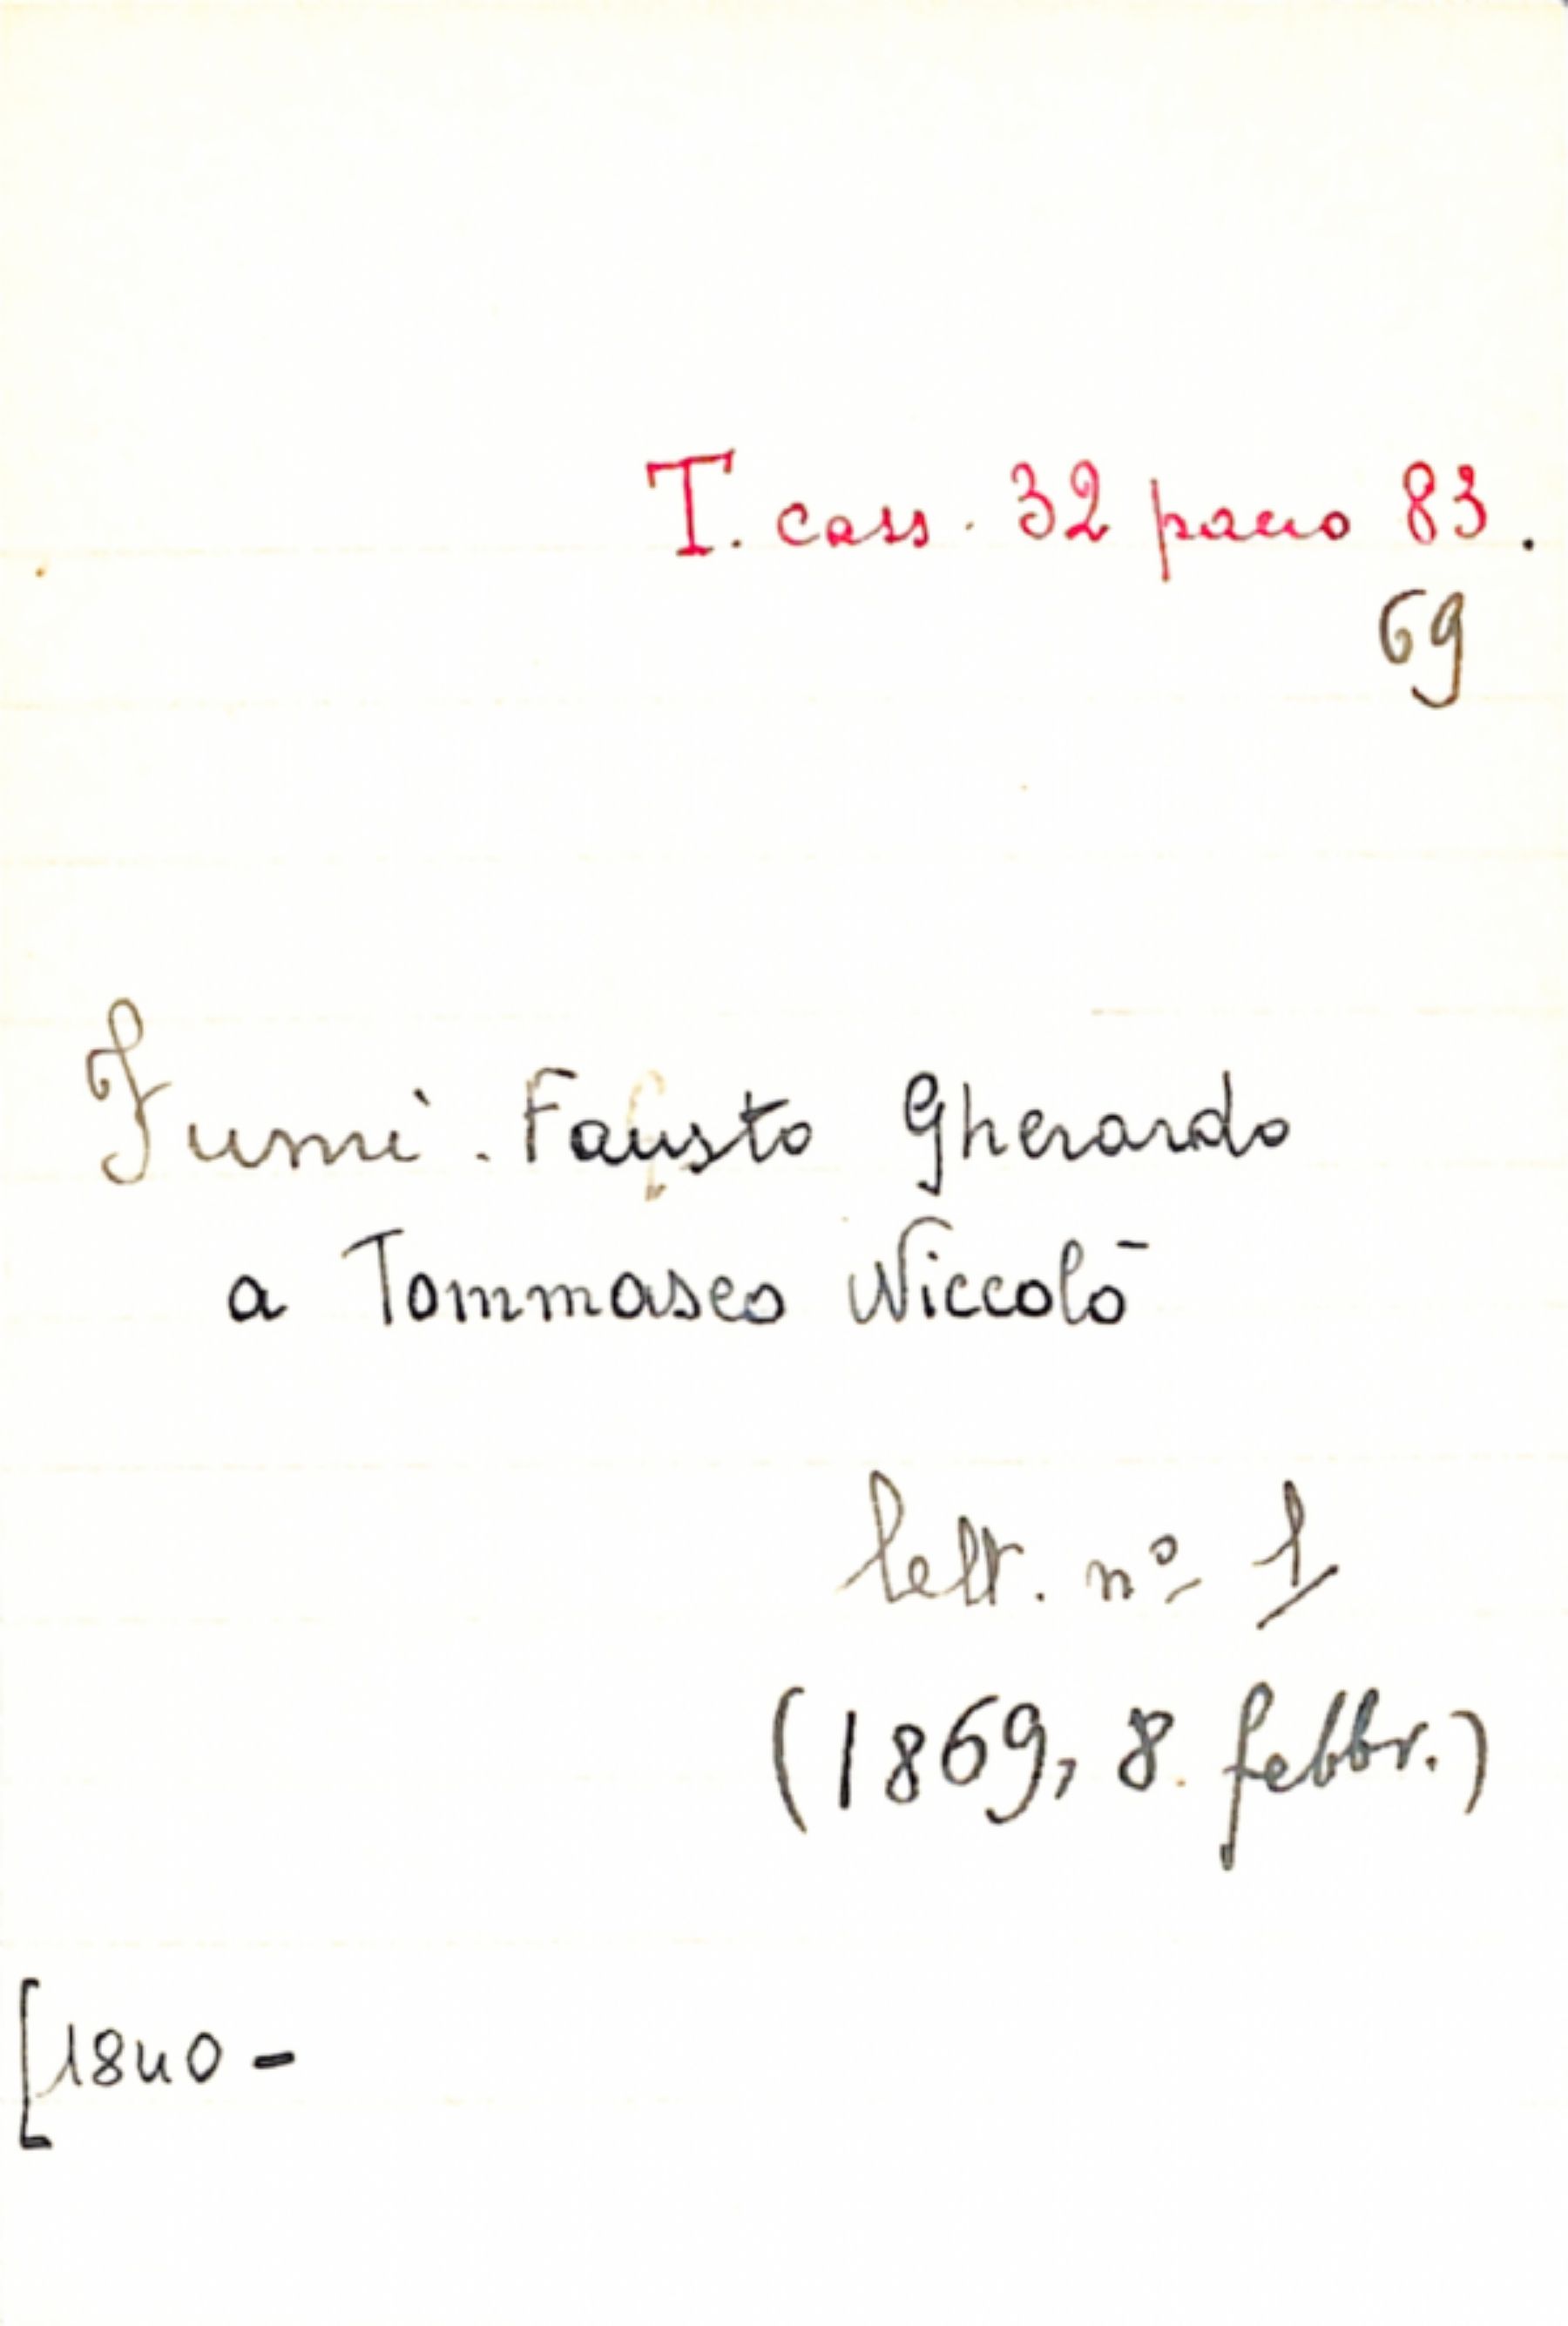 T. cass. 32 pacco 83.
69
Fumi. Fausto Gherardo
a Tommaseo Niccolò
lett. nº 1
(1869, 8. febbr.)
[1840 -